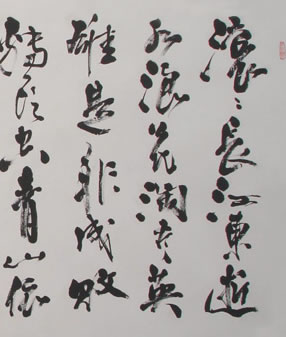 滾〻長江東逝
水浪花淘尽英
雄是非成敗
轉頭空青山依